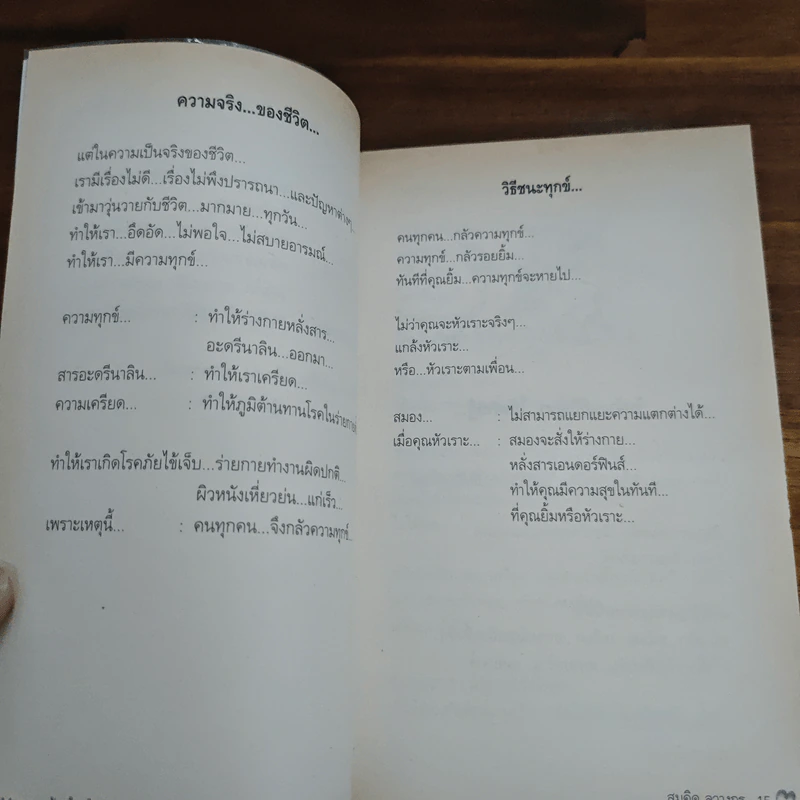 ความจริง...ของชีวิต...
แต่ในความเป็นจริงของชีวิต...
เรามีเรื่องไม่ดี...เรื่องไม่พึงปรารถนา...และปัญหาต่างๆ
เข้ามาวุ่นวายกับชีวิต...มากมาย...ทุกวัน...
ทำให้เรา...อึดอัด...ไม่พอใจ...ไม่สบายอารมณ์...
ทำให้เรา...มีความทุกข์...
ความทุกข์... : ทำให้ร่างกายหลั่งสาร...
อะดรีนาลิน...ออกมา...
สารอะดรีนาลิน... : ทำให้เราเครียด...
ความเครียด... : ทำให้ภูมิต้านทานโรคในร่างกาย
ทำให้เราเกิดโรคภัยไข้เจ็บ...ร่ายกายทำงานผิดปกติ...
ผิวหนังเหี่ยวย่น...แก่เร็ว...
เพราะเหตุนี้... : คนทุกคน...จึงกลัวความทุกข์...
วิธีชนะทุกข์...
คนทุกคน...กลัวความทุกข์...
ความทุกข์...กลัวรอยยิ้ม...
ทันทีที่คุณยิ้ม...ความทุกข์จะหายไป...
ไม่ว่าคุณจะหัวเราะจริงๆ...
แกล้งหัวเราะ...
หรือ...หัวเราะตามเพื่อน...
สมอง... : ไม่สามารถแยกแยะความแตกต่างได้...
เมื่อคุณหัวเราะ... : สมองจะสั่งให้ร่างกาย...
หลั่งสารเอนดอร์ฟินส์...
ทำให้คุณมีความสุขในทันที...
ที่คุณยิ้มหรือหัวเราะ...
15